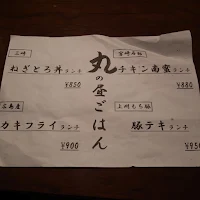 丸の昼ごはん
三崎
ねぎとろ丼ランチ
¥850
宮崎日南
チキン南蛮ランチ
¥880
広島産
カキフライランチ
¥900
上州もち豚
豚テキランチ
¥950